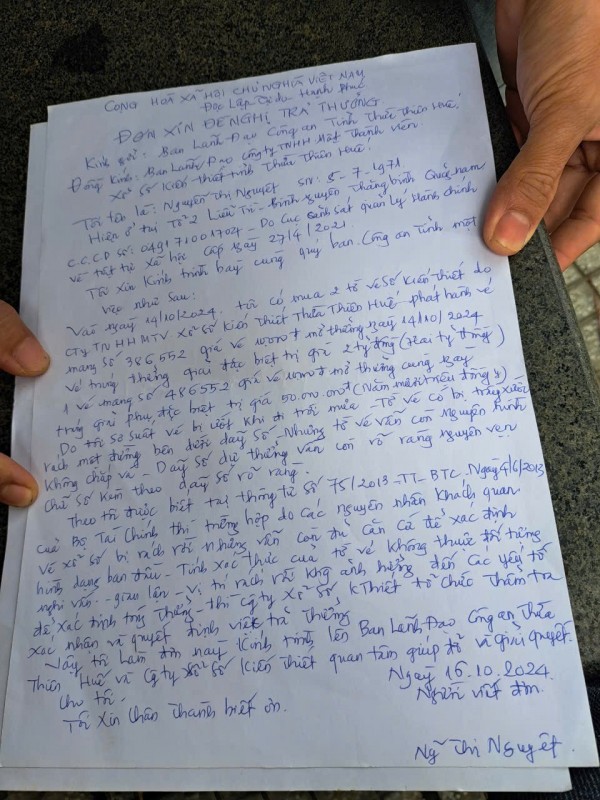 CỘNG HOÀ XÃ HỘI CHỦ NGHĨA VIỆT NAM
Độc Lập Tự do Hạnh Phúc
ĐƠN XIN ĐỀ NGHỊ TRẢ THƯỞNG
Kính gửi: Ban Lãnh Đạo Công an Tỉnh Thừa Thiên Huế.
Đồng Kính: Ban Lãnh Đạo Công ty TNHH Một Thành viên
Xổ Số Kiến thiết tỉnh Thừa Thiên Huế.
Tôi tên là: Nguyễn Thị Nguyệt SN: 8-7-1971
Hiện ở tại Tổ 2 Liễu Trì - Bình Nguyên Thăng Bình Quảng nam
C.C.C.D số: 049171001702 - Do Cục Cảnh Sát quản lý Hành chính
về trật tự xã hội cấp ngày 27/4/2021.
Tôi xin Kính trình bày cùng quý ban. Công an Tỉnh một
việc như sau:
Vào ngày 14/10/2024. tôi có mua 2 tờ vé Số Kiến Thiết do
CTy TNHH MTV Xổ Số Kiến Thiết Thừa Thiên Huế phát hành vé
mang Số 386552 giá vé 10.000đ mở thưởng ngày 14/10/2024
vé trúng thưởng giải đặc biệt trị giá 2 tỷ đồng (Hai tỷ đồng)
1 vé mang số 486552 giá vé 10.000đ mở thưởng cùng ngày
trúng giải phụ đặc biệt trị giá 50.000.000đ (Năm mươi triệu đồng)
Do tôi sơ suất vé bị ướt khi đi trời mưa - Tờ vé có bị trầy xước
rách một đường bên dưới dãy số - Nhưng tờ vé vẫn còn nguyên hình
Không chấp vá - Dãy Số dự thưởng vẫn còn rõ ràng nguyên vẹn
Chữ Số Kèm theo dãy số rõ ràng.
Theo tôi được biết tại thông tư Số 75/2013-TT-BTC. Ngày 4/6/2013
của Bộ Tài Chính thì trường hợp do các nguyên nhân khách quan
vé xổ số bị rách rời nhưng vẫn còn đủ căn cứ để xác định
hình dạng ban đầu - Tính xác thực của tờ vé không thuộc đối tượng
nghi vấn - gian lận - Vị trí rách rời Không ảnh hưởng đến các yếu tố
để xác định trúng thưởng - thì Công ty Xổ Số K Thiết tổ chức Thẩm tra
xác nhận và quyết định việc trả thưởng
Vậy tôi làm đơn này Kính trình lên Ban Lãnh Đạo Công an Thừa
Thiên Huế và Công ty Xổ Số Kiến Thiết quan tâm giúp đỡ và giải quyết
cho tôi.
Ngày 16.10.2024.
Tôi Xin Chân Thành biết ơn.
Người viết đơn.
Ng Thị Nguyệt.